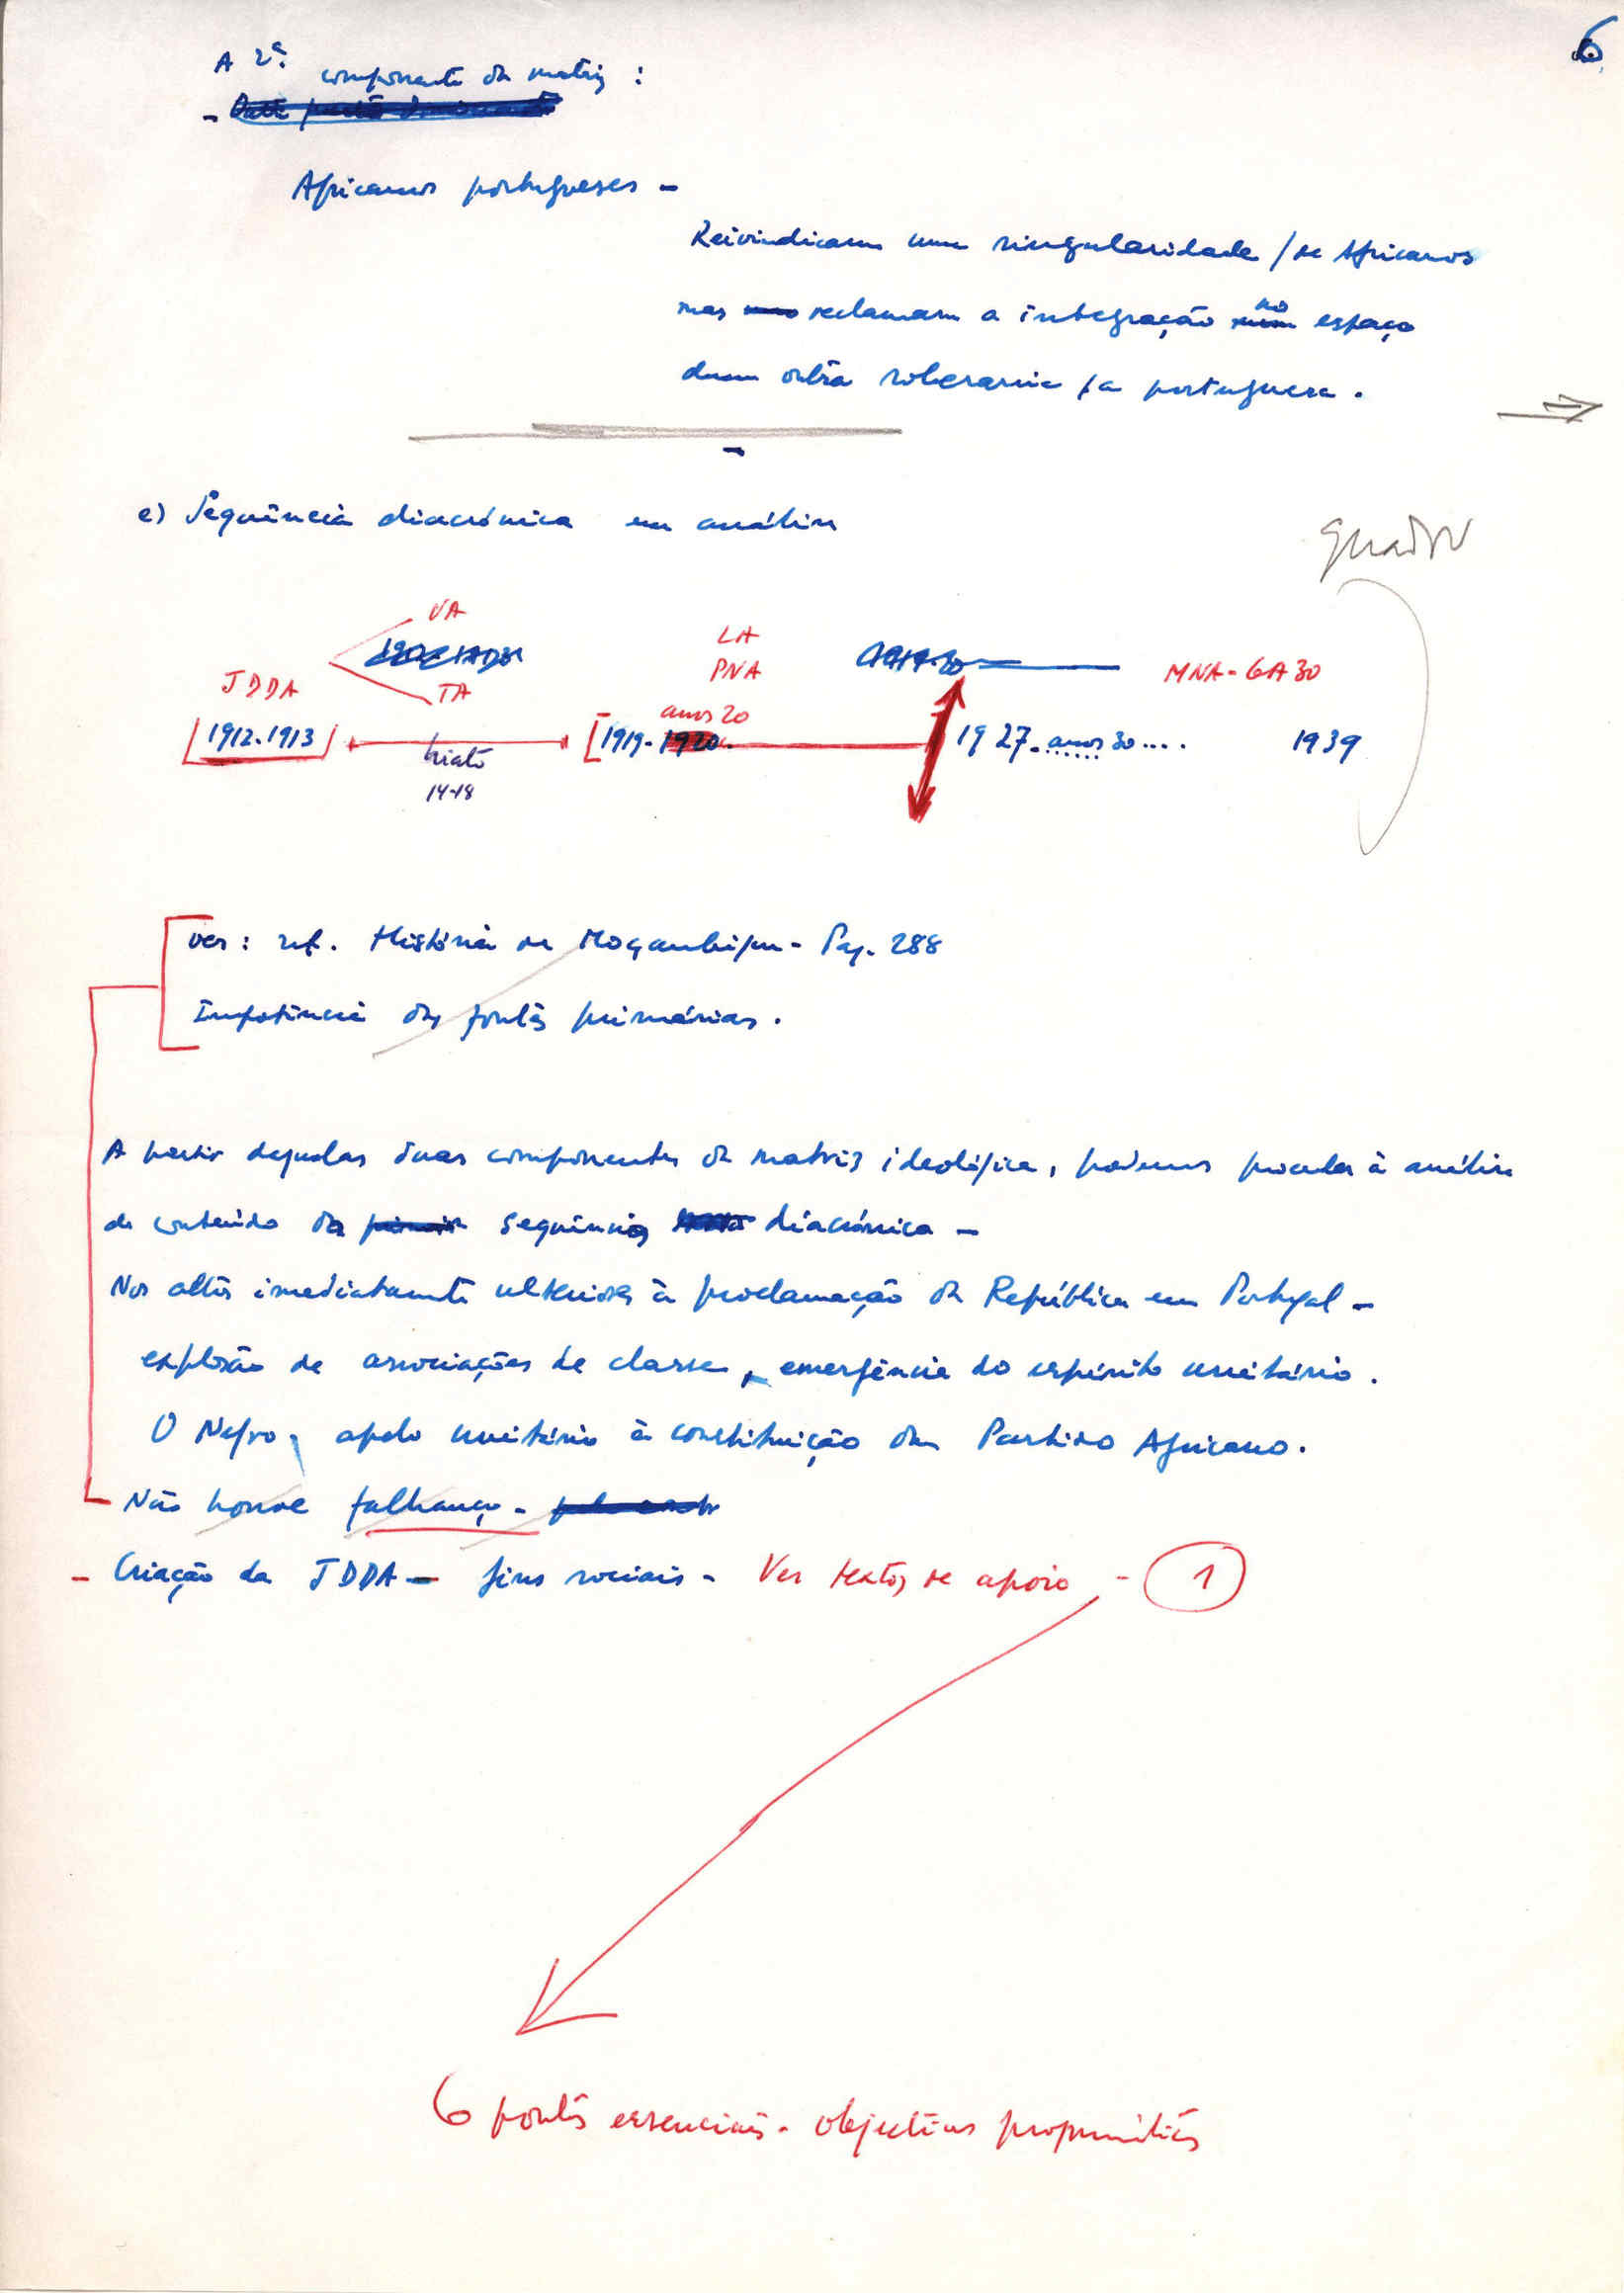 6
A 2ª componente da matriz :
-
Africanos portugueses -
Reivindicam uma singularidade / de Africanos
mas reclamam a integração no espaço
duma outra soberania / a portuguesa .
e) Sequência diacrónica em análise
quadro
VA
LA
PNA
1919-30
MNA - GA 30
JDDA
TA
anos 20
1912-1913
hiato
14-18
1919-1920
1927 - anos 30 ....
1939
ver : ref. História de Moçambique - Pag. 288
Importância das fontes primárias .
A partir daquelas duas componentes da matriz ideológica, podemos proceder à análise
do conteúdo da sequência diacrónica -
Nos imediatamente ulteriores à proclamação da República em Portugal -
explosão de associações de classe, emergência do espírito unitário .
O Negro, apelo unitário à constituição dum Partido Africano .
Não houve falhanço -
- Criação da JDDA - fins sociais - Ver textos de apoio - 1
6 pontos essenciais - objectivos